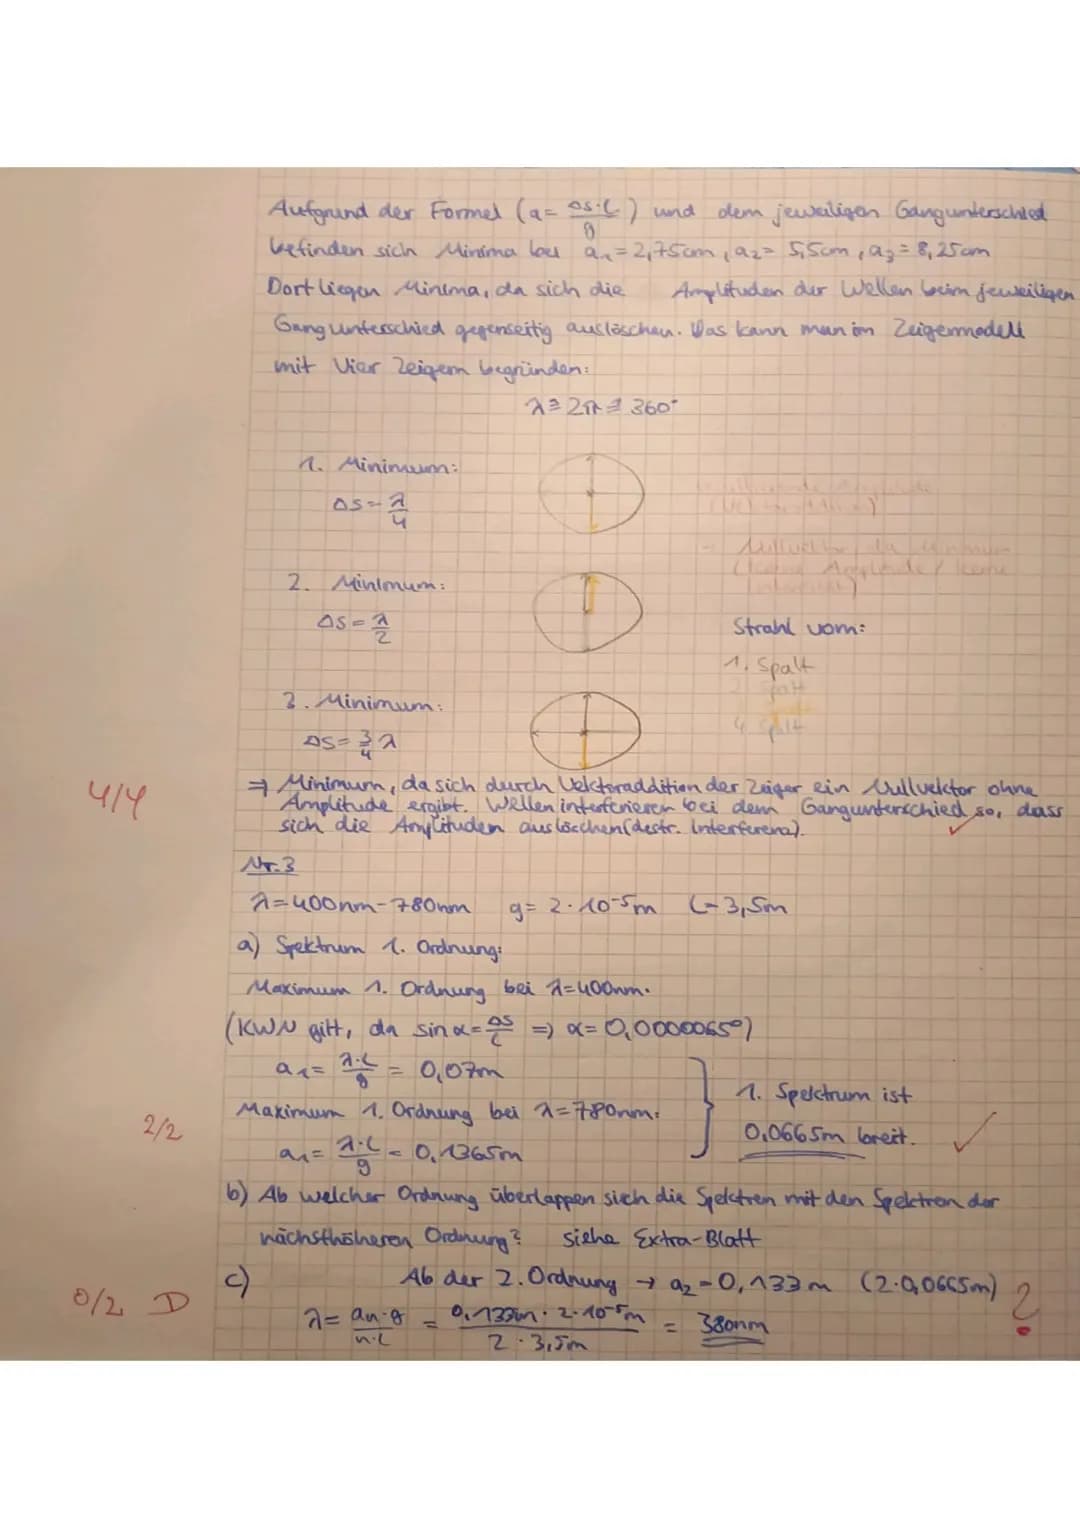 Aufgrund der Formel (a = Δs·l/g) und dem jeweiligen Gangunterschied
befinden sich Minima bei a₁=2,75cm, a₂= 5,5cm, a₃= 8,25cm
Dort liegen Minima, da sich die Amplituden der Wellen beim jeweiligen
Gangunterschied gegenseitig auslöschen. Das kann man im Zeigermodell
mit Vier Zeigern begründen:
λ ≙ 2π ≙ 360°
1. Minimum:
Δs = λ/4
2. Minimum:
Δs = λ/2
Strahl vom:
1. Spalt
2. Spalt
3. Minimum:
4. Spalt
Δs = 3/4 λ
⇒ Minimum, da sich durch Vektoraddition der Zeiger ein Nullvektor ohne
4/4
Amplitude ergibt. Wellen interferieren bei dem Gangunterschied so, dass
sich die Amplituden auslöschen (destr. Interferenz). ✓
Nr. 3
λ = 400nm - 780nm g = 2·10⁻⁵m l = 3,5m
a) Spektrum 1. Ordnung:
Maximum 1. Ordnung bei λ=400nm.
(KWN gilt, da sin α = Δs/l ⇒ α = 0,0000065°)
a₁ = λ·l/g = 0,07m
1. Spektrum ist
Maximum 1. Ordnung bei λ=780nm:
2/2
0,0665m breit. ✓
a₁ = λ·l/g = 0,1365m
b) Ab welcher Ordnung überlappen sich die Spektren mit den Spektren der
nächsthöheren Ordnung? siehe Extra-Blatt
c) Ab der 2. Ordnung → a₂ = 0,133m (2·0,0665m) ?
0/2 D
λ = an·g/n·l = 0,133m · 2·10⁻⁵m / 2·3,5m = 380nm